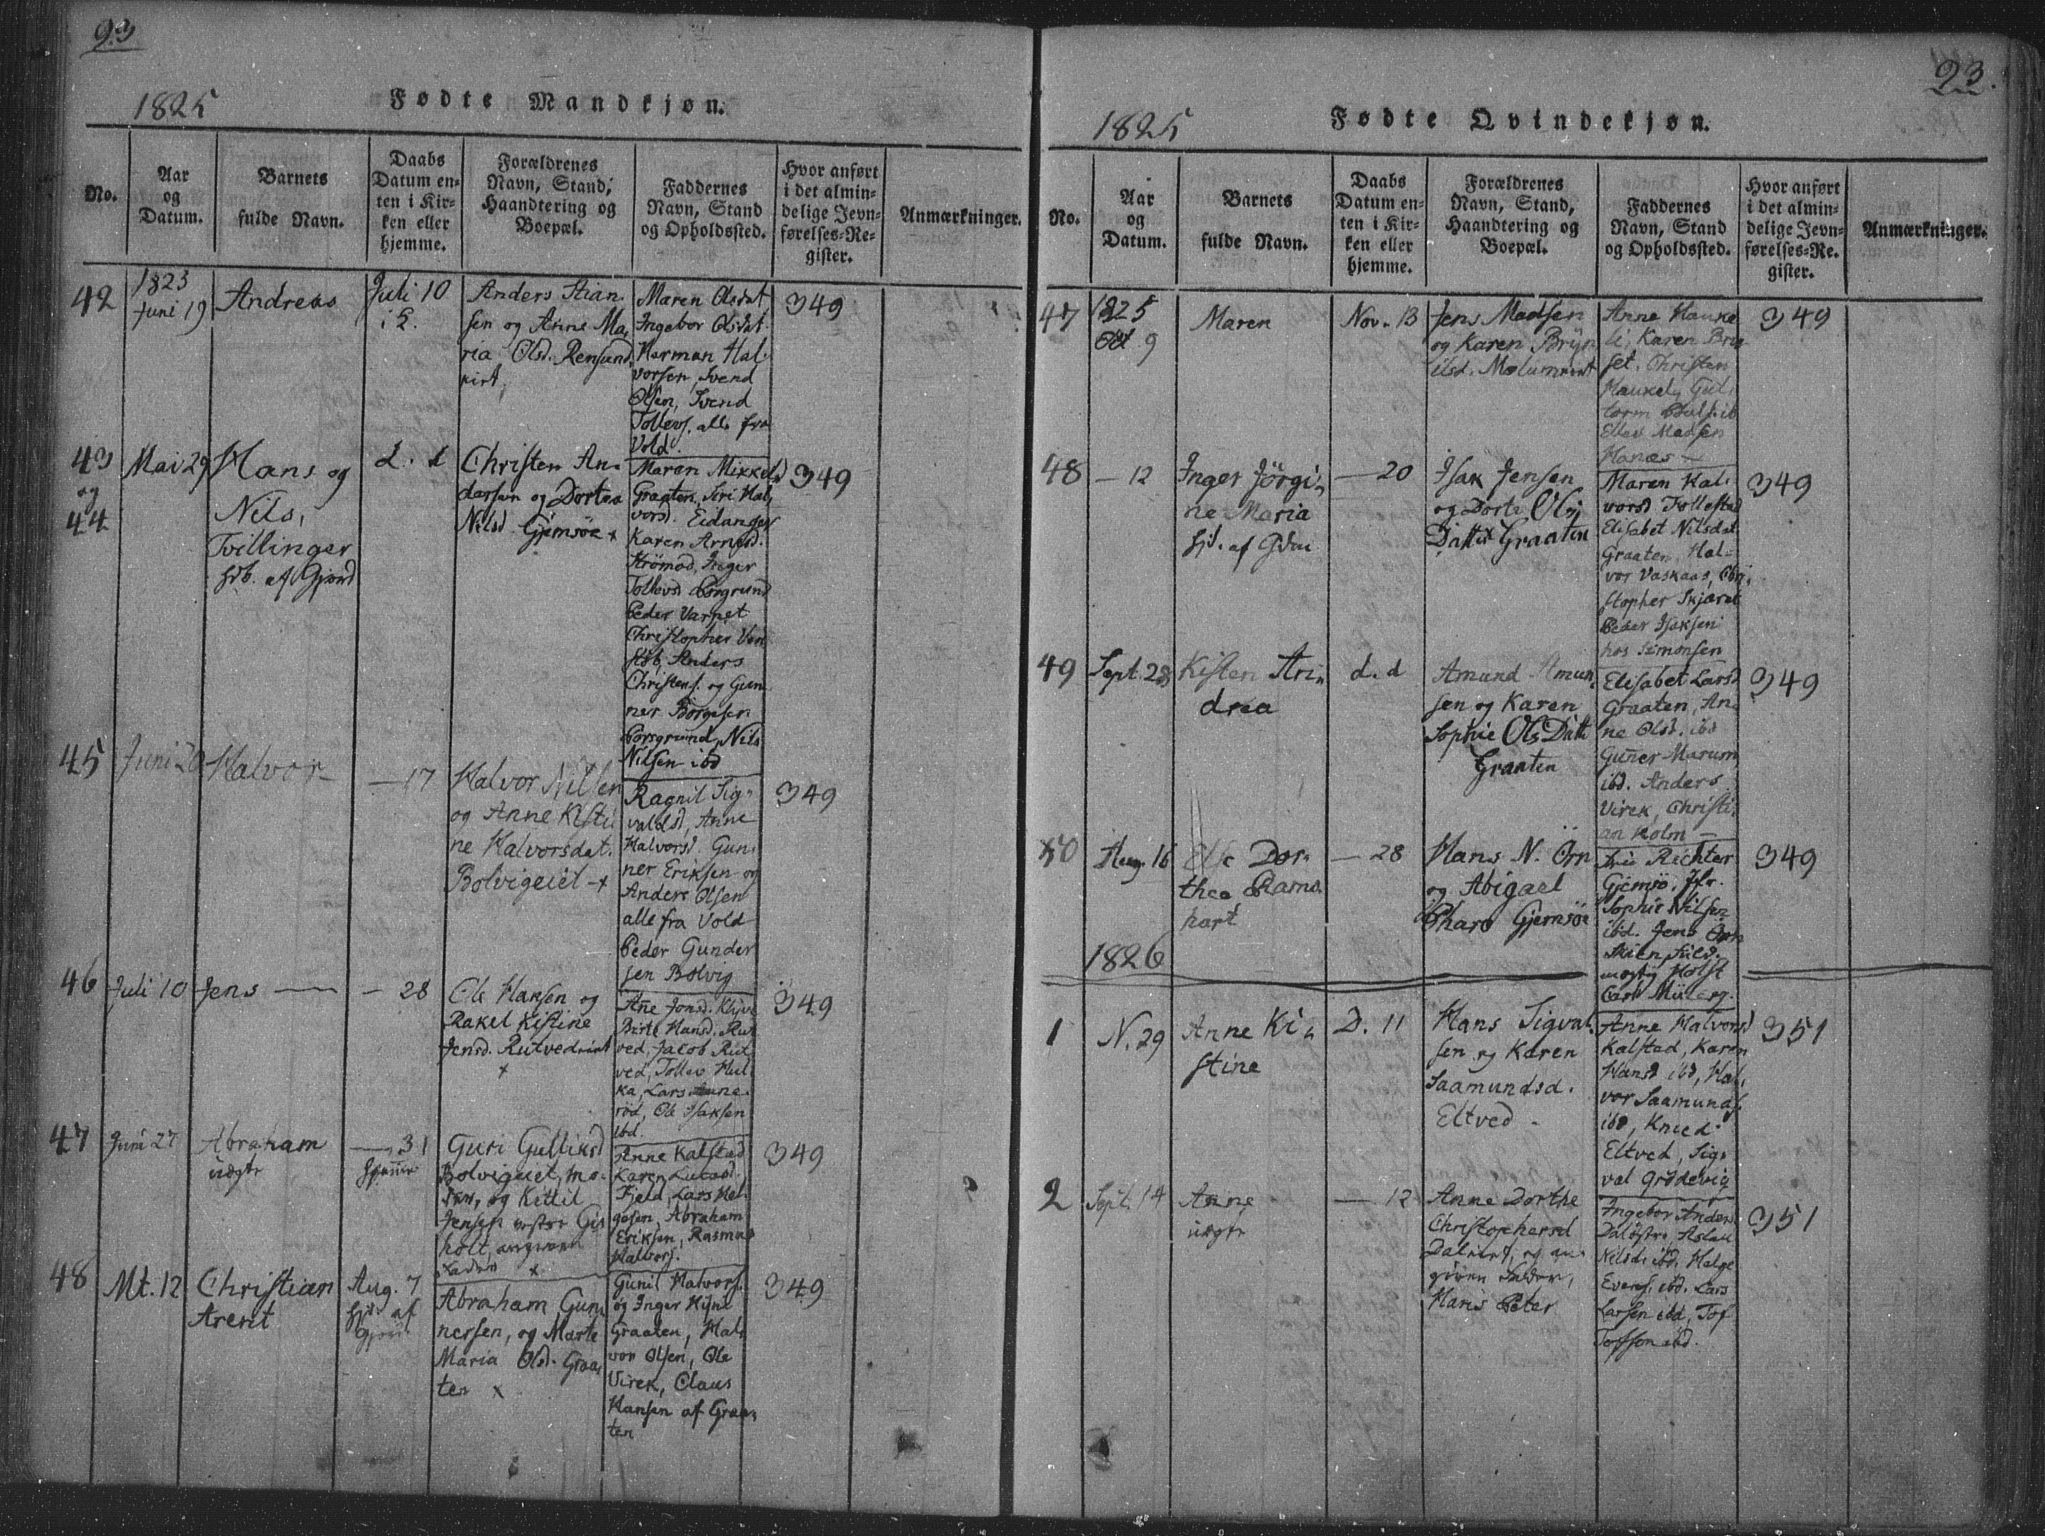 93
1825
Fødte Mandkjøn.
No.
Aar
og
Datum.
Barnets
fulde Navn.
Daabs
Datum en-
ten i Kir-
ken eller
hjemme.
Forældrenes
Navn, Stand,
Haandtering og
Boepæl.
Faddernes
Navn, Stand
og Opholdssted.
Hvor anført
i det almin-
delige Jevn-
førelses-Re-
gister.
Anmærkninger.
42
1823
Juni 19
Andreas
Juli 10
Anders Stian-
sen og Anne Ma-
ria Olsd.
Maren Olsdat
Ingebor Olsdat.
Herman Hal-
vorsen, Svend
Olsen, Svend
Tollevs. alle fra
Vold.
349
43
og
44
Mai 29
Hans og
Nils,
Tvillinger
hdb. af Gjerd
d. d
Christen An-
dersen og Dortea
Nilsd. Gjemsöe x
Maren Mikkelsd
Graaten, Siri Hal-
vorsd. Eidanger
Karen Arnesd.
Strömod, Inger
Tollevsd Porsgrund
Peder Varpet
Christopher Ven-
stöb, Anders
Christens. og Gun-
ner Borgesen
Porsgrund, Nils
Nilsen ibd
349
45
Juni 20
Halvor
— 17
Halvor Nilsen
og Anne Kisti
ne Halvorsdat.
Bolvigeiet x
Ragnil Sig-
valdsd, Anne
Halvorsd. Gun-
ner Eriksen og
Anders Olsen
alle fra Vold
Peder Gunder
sen Bolvig
349
46
Juli 10
Jens
— 28
Ole Hansen og
Rakel Kistine
Jensd. Rutvedeiet
x
Ane Jonsd. Klyve
Birte Hansd. Rut
ved, Jacob Rut
ved, Tollev Hul-
ka, Lars
röd, Ole Isaksen
ibd.
349
47
Juni 27
Abraham
uægte
— 31
hjemme
Guri Gulliksd
Bolvigeiet, mo-
der, og Kittil
Jensen vestre Gis
holt, angiven
Fader x
Anne Kalstad
Karen Lucasd.
Fjeld, Lars Hel-
gesen, Abraham
Eriksen, Rasmus
Halvors.
349
48
Mt. 12
Christian
Arent
Aug. 7
hjd. af
Gjerd
Abraham Gun-
nersen, og Marte
Maria Olsd. Graa-
ten x
Gunil Halvors.
og Inger Hans
Graaten, Hal-
vor Olsen, Ole
Virek, Claus
Hansen af Graa-
ten
349
23.
1825
Fødte Qvindekjøn.
No.
Aar
og
Datum.
Barnets
fulde Navn.
Daabs
Datum en-
ten i Kir-
ken eller
hjemme.
Forældrenes
Navn, Stand,
Haandtering og
Boepæl.
Faddernes
Navn, Stand
og Opholdssted.
Hvor anført
i det almin-
delige Jevn-
førelses-Re-
gister.
Anmærkninger.
47
1825
Oct 9
Maren
Nov. 13
Jens Madsen
og Karen Bryn
ilsd.
Anne Hauke
li, Karen Bra
set. Christen
Haukely Gut-
torm Pauls. ib
Ellev Madsen
Hanæs
349
48
— 12
Inger Jörgi-
ne Maria
hjd. af Gdm
— 20
Isak Jensen
og Dorte Ols
Datter Graaten
Maren Hal-
vorsd Tollestad
Elisabet Nilsdat
Graaten, Hal-
vor Vaskaas, Chri-
stopher Skjæret
Peder Isaksen
hos Simonsen
349
49
Sept. 28
Kisten An-
drea
d. d
Amund Amun-
sen og Karen
Sophie Ols Datt
Graaten
Elisabet Larsd
Graaten, An-
ne Olsd. ibd
Guner Marum
ibd. Anders
Virek, Christi-
an Holm
349
50
Aug. 16
Else Dor-
thea Rams-
hart
— 28
Hans N. Örn
og Abigael
Pharo Gjemsöe
Fru Richter
Gjemsö, Jfr.
Sophie Nilsen
ibd. Jens Örn
Skien, Fuld-
mægtig Holst
Carl Müller
349
1826
1
N. 29
Anne Ki-
stine
D. 11
Hans Sigval-
sen og Karen
Saamundsd.
Eltved
Anne Halvorsd
Kalstad, Karen
Hansd ibd, Hal-
vor Saamunds.
ibd, Knud
Eltved, Sig-
val Grödevig
351
2
Sept. 14
Anne
uægte
— 12
Anne Dorthe
Christophersd
Daleiet, og an-
given Fader,
Hans Peter
Ingebor Anders.
Dalöstre, Aslau
Nilsd. ibd. Helge
Evens. ibd. Lars
Larsen ibd, Tof
Tofsson ibd.
351